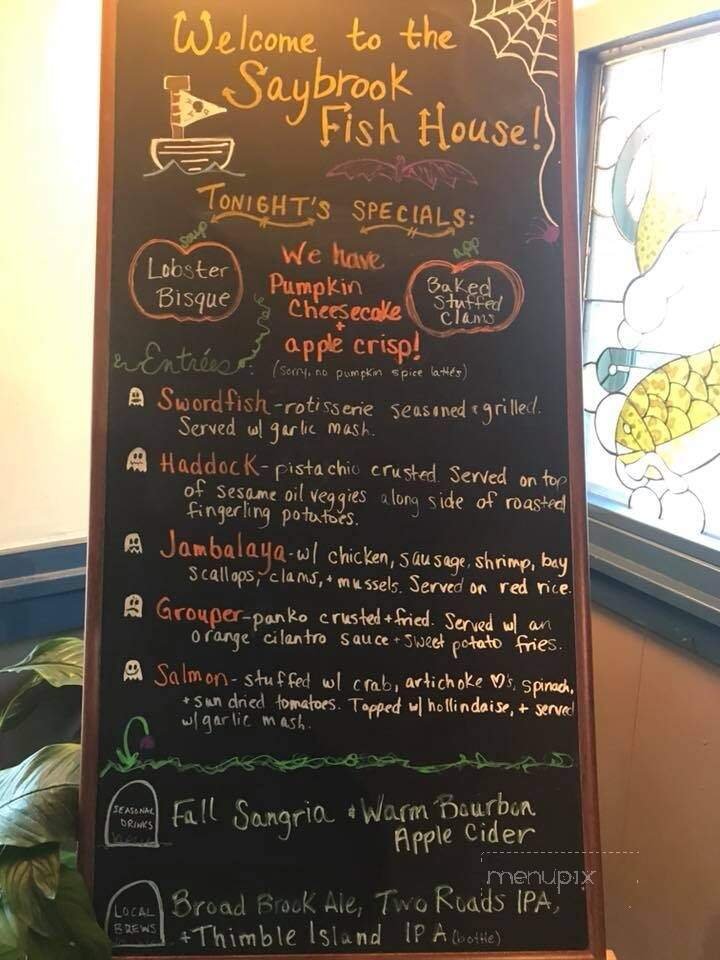 Welcome to the
Saybrook
Fish House!
TONIGHT'S SPECIALS:
soup
Lobster
Bisque
We have
Pumpkin
Cheesecake
+
apple crisp!
(sorry, no pumpkin spice lattés)
app
Baked
Stuffed
Clams
Entrées:
Swordfish-rotisserie seasoned + grilled.
Served w/ garlic mash.
Haddock-pistachio crusted. Served on top
of sesame oil veggies along side of roasted
fingerling potatoes.
Jambalaya-w/ chicken, sausage, shrimp, bay
scallops, clams, + mussels. Served on red rice.
Grouper-panko crusted + fried. Served w/ an
orange cilantro sauce + sweet potato fries.
Salmon-stuffed w/ crab, artichoke ♡'s, spinach,
+ sun dried tomatoes. Topped w/ hollindaise, + served
w/ garlic mash.
SEASONAL
DRINKS
Fall Sangria + Warm Bourbon
Apple Cider
menupix
LOCAL
BREWS
Broad Brook Ale, Two Roads IPA,
+ Thimble Island IPA (bottle)